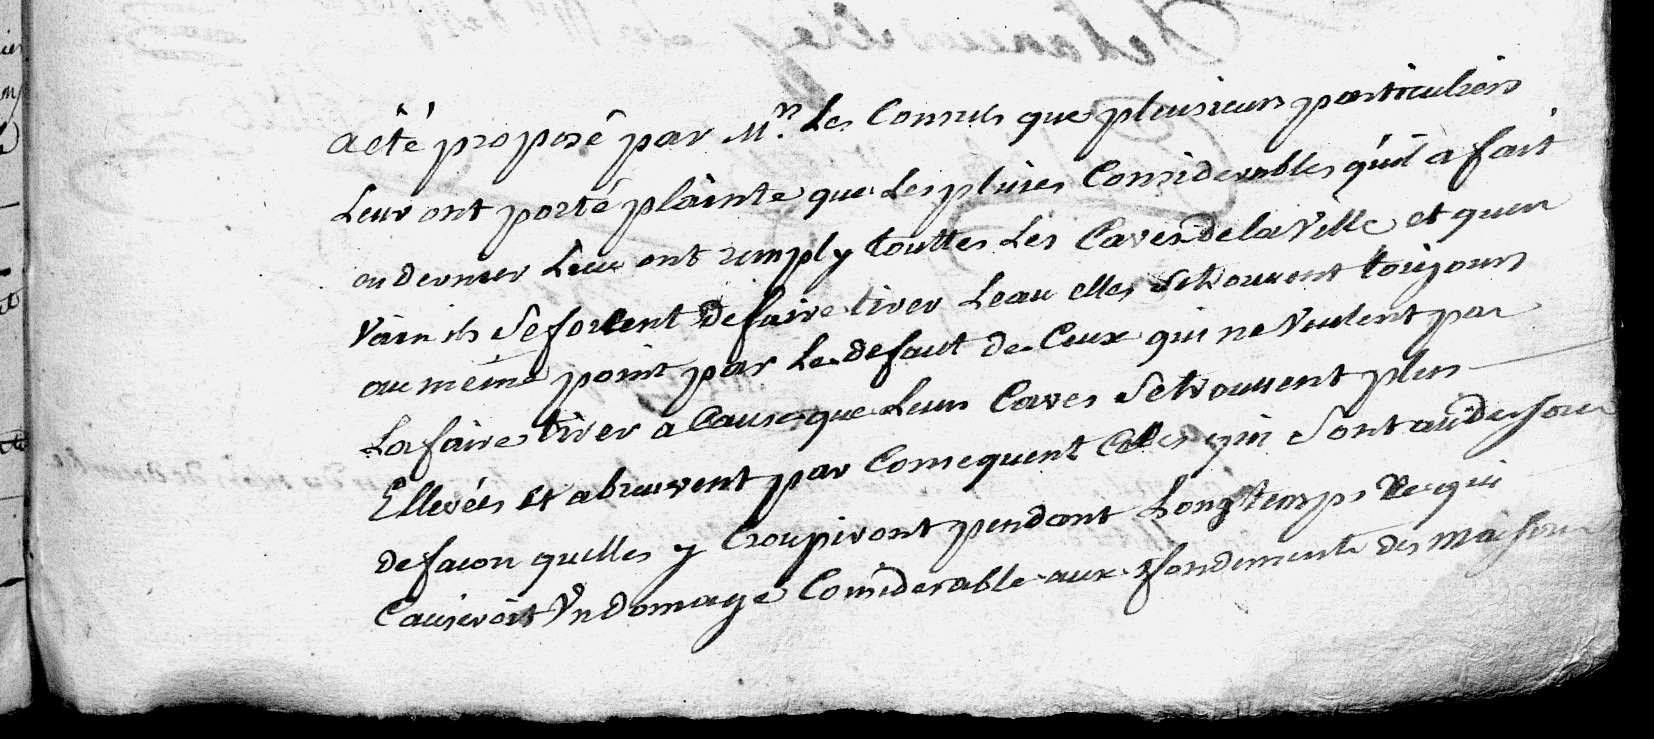 a été proposé par Mrs Les Consuls que plusieurs particuliers
Leur ont porté plainte que Les pluies Considerables quil a fait
au dernier Lieu ont remply touttes Les Caves de la Ville et quen
Vain ils Seforcent de faire tirer Leau elles Setrouvent toujours
au même point par Le defaut de Ceux qui ne Veulent pas
La faire tirer a Cause que Leurs Caves Setrouvent plus
Ellevées et abreuvent par Consequent Celles qui Sont au dessous
de facon quelles y Croupiront pendant Longtemps Ce qui
Causeroit Un domage Considerable aux fondements des maisons